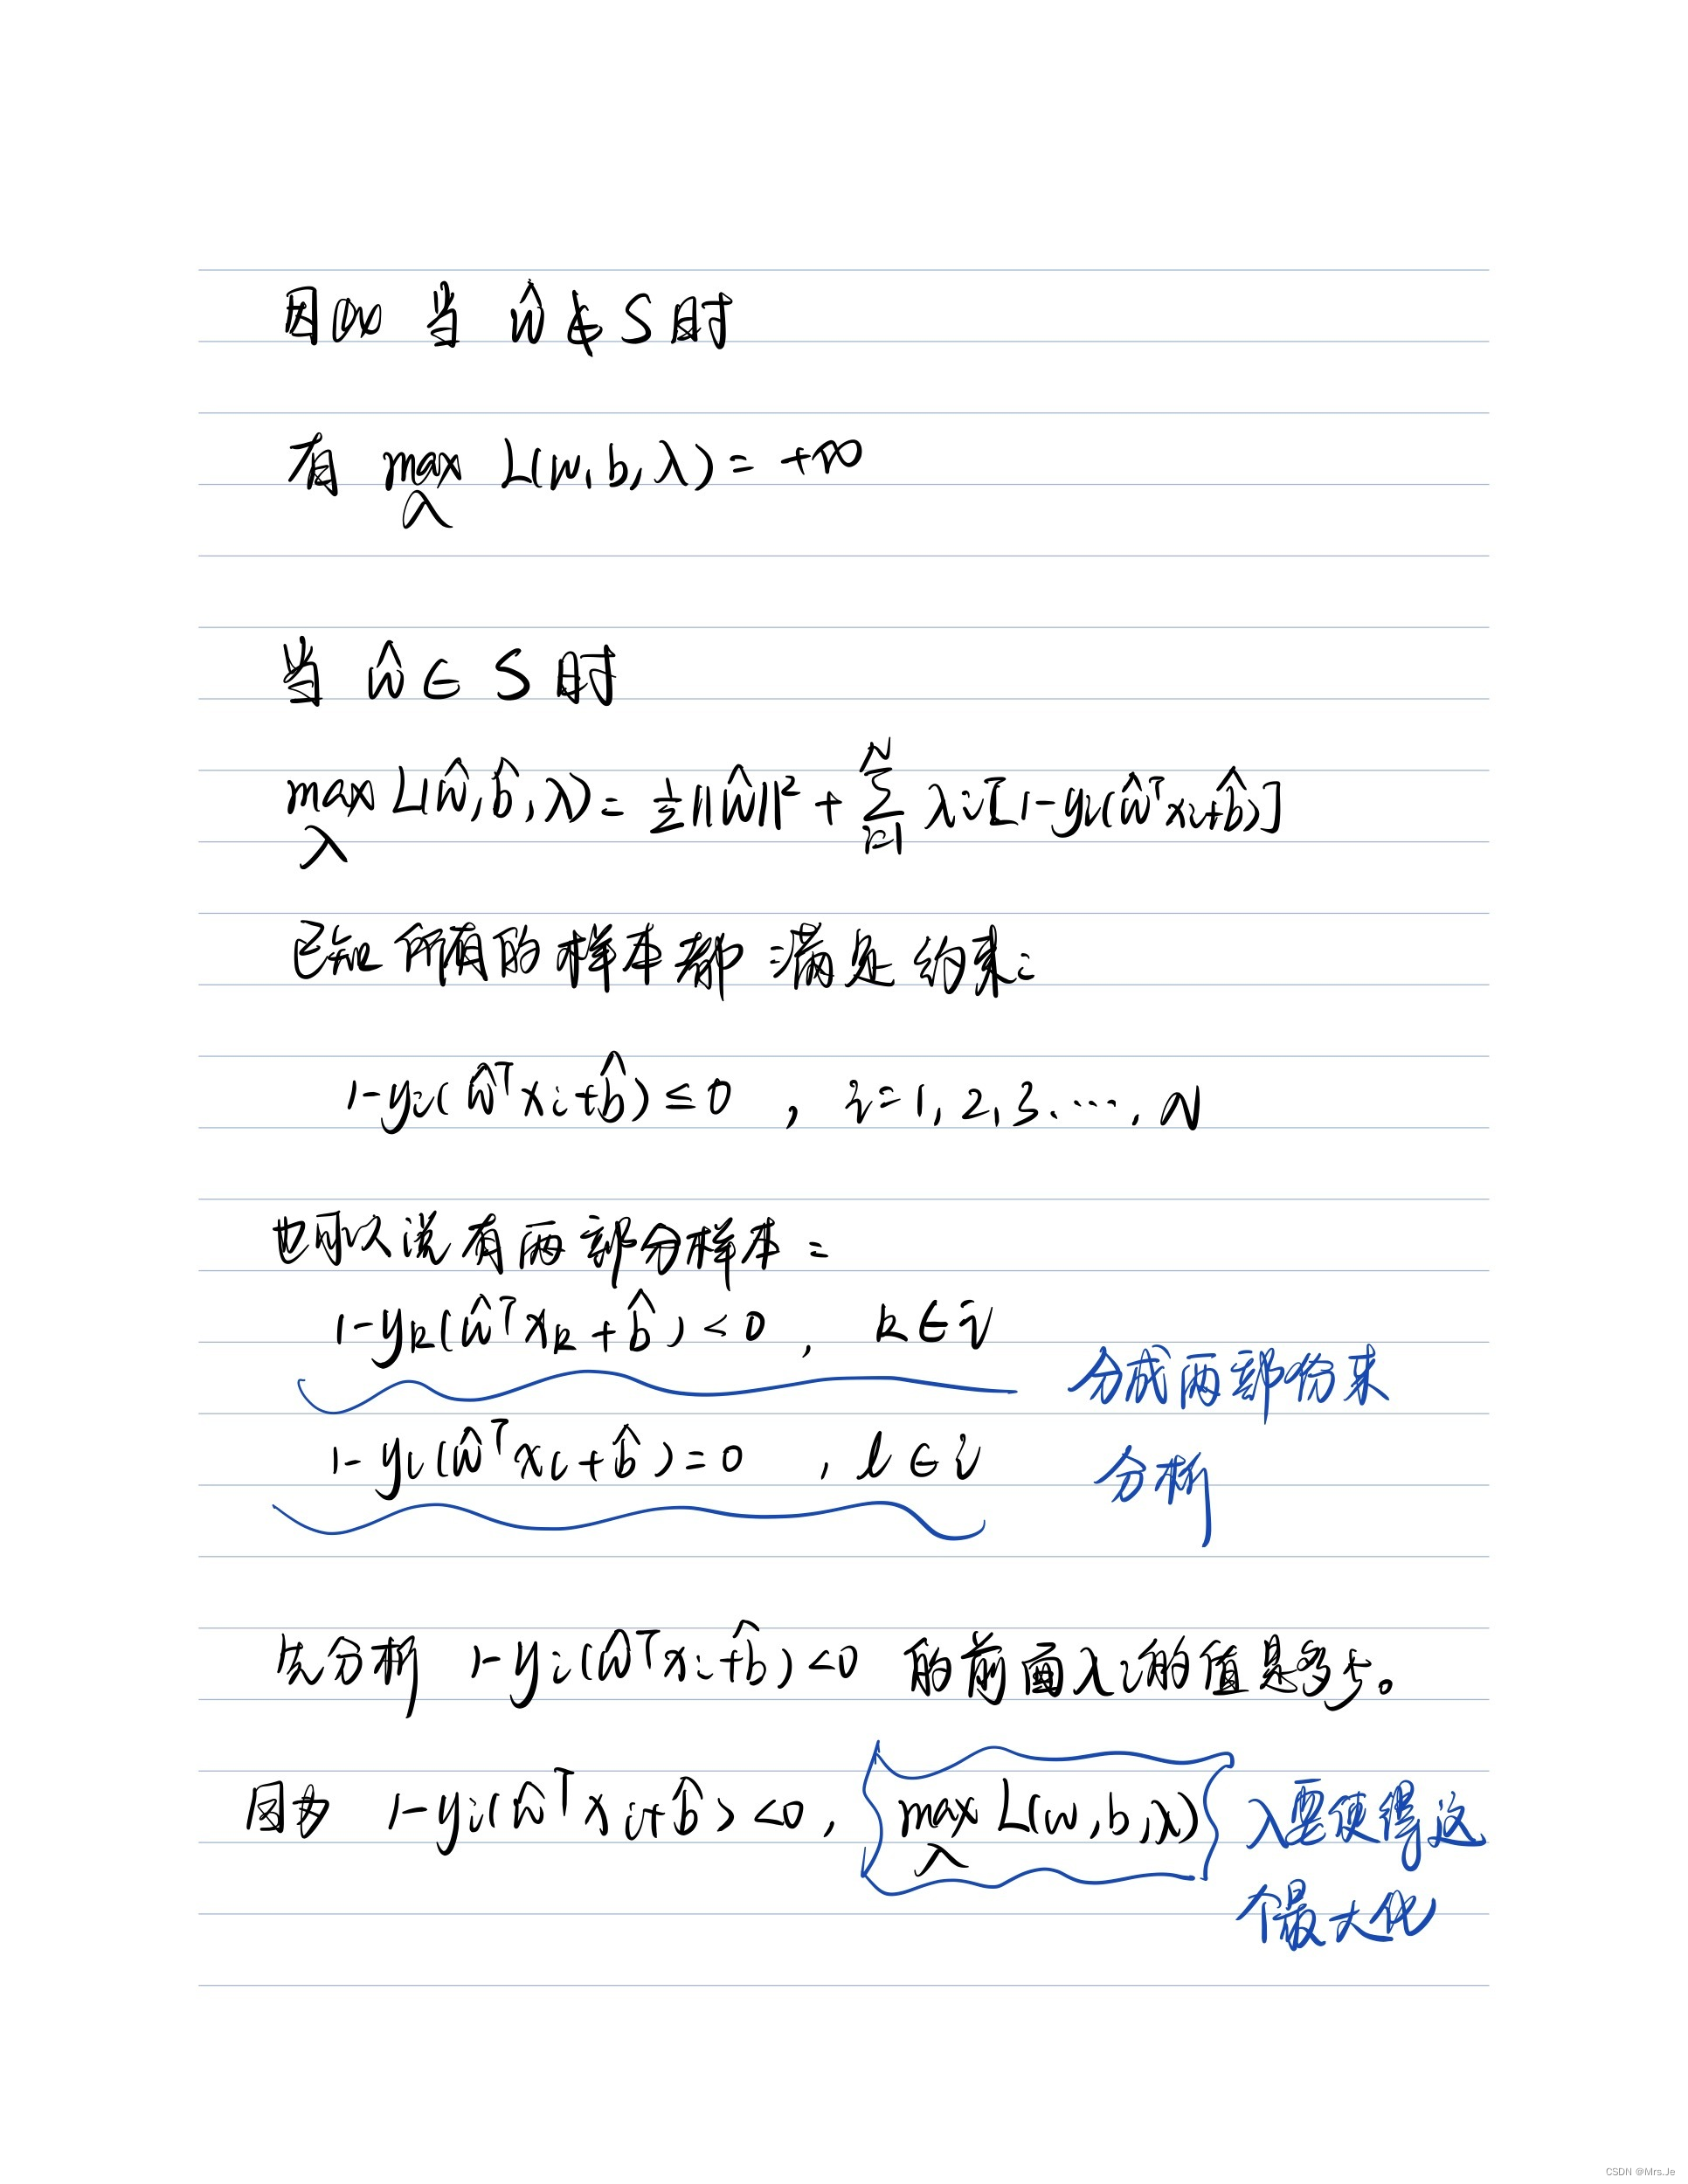 因此 当 ŵ ∉ S 时
有 max L(w, b, λ) = +∞
λ
当 ŵ ∈ S 时
max L(ŵ, b̂, λ) = ½||ŵ||² + ∑ᵢ₌₁ᴺ λᵢ[1-yᵢ(ŵᵀxᵢ+b̂)]
λ
已知所有的样本都满足约束:
1-yᵢ(ŵᵀxᵢ+b̂) ≤ 0 , i=1, 2, 3. ⋯, N
也可以说有两部分样本:
1-yₖ(ŵᵀxₖ+b̂) < 0 , k ∈ i
分成两部份来
1-yₗ(ŵᵀxₗ+b̂) = 0 , l ∈ i
分析
先分析 1-yᵢ(ŵᵀxᵢ+b̂) <0 的前面λᵢ的值是多少。
因为 1-yᵢ(ŵᵀxᵢ+b̂) <0, max L(w, b, λ) λ要使得这
λ
个最大化
CSDN @Mrs.Je